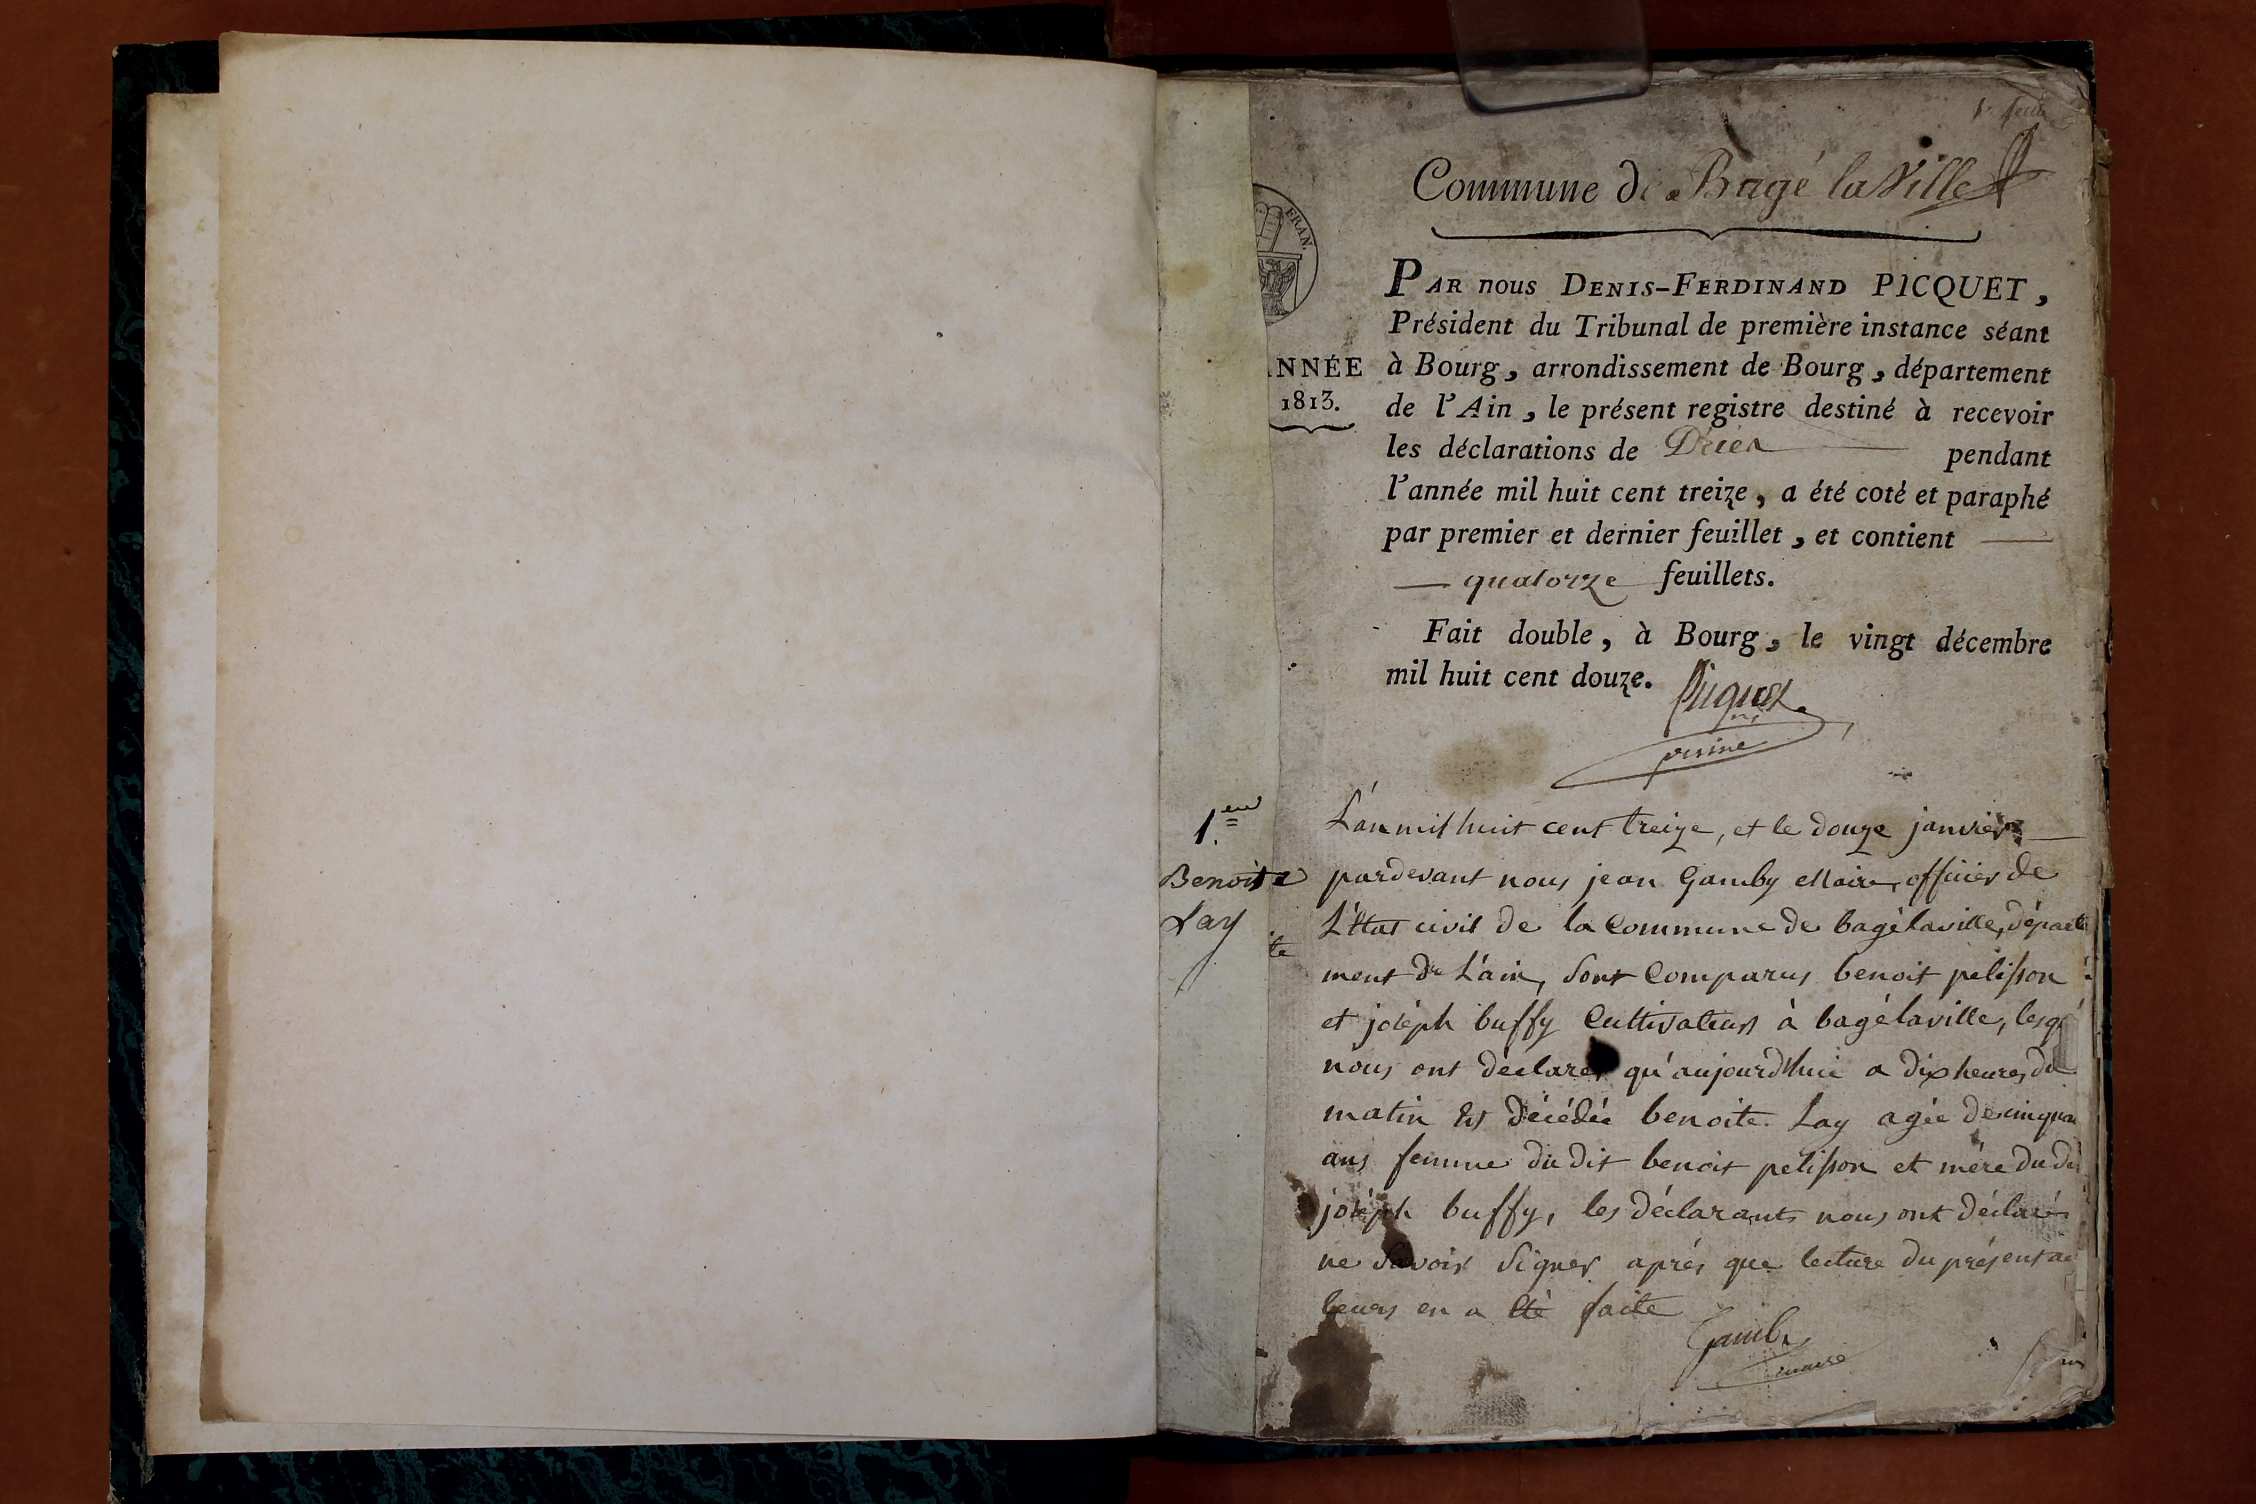 1r. feuil
Commune de Bagé la Ville
FRAN.
PAR nous DENIS-FERDINAND PICQUET,
Président du Tribunal de première instance séant
ANNÉE
1813.
à Bourg, arrondissement de Bourg, département
de l'Ain, le présent registre destiné à recevoir
les déclarations de Décès pendant
l'année mil huit cent treize, a été coté et paraphé
par premier et dernier feuillet, et contient
quatorze feuillets.
Fait double, à Bourg, le vingt décembre
mil huit cent douze.
Picquet
1.er
Benoite
Lay
L'an mil huit cent treize, et le douze janvier
pardevant nous jean Gamby Maire, officier de
L'Etat civil de la Commune de bagélaville, départe
ment de L'ain, sont Comparus benoit pelisson
et joseph buffy Cultivateurs à bagélaville, lesq
nous ont déclarés qu'aujourd'hui a dix heures du
matin Est décédée benoite Lay agée de cinqua
ans femme du dit benoit pelisson et mère du dit
joséph buffy, les déclarants nous ont déclaré
ne Savoir Signer aprés que lecture du présent ac
leurs en a Eté faite
Gamby
maire